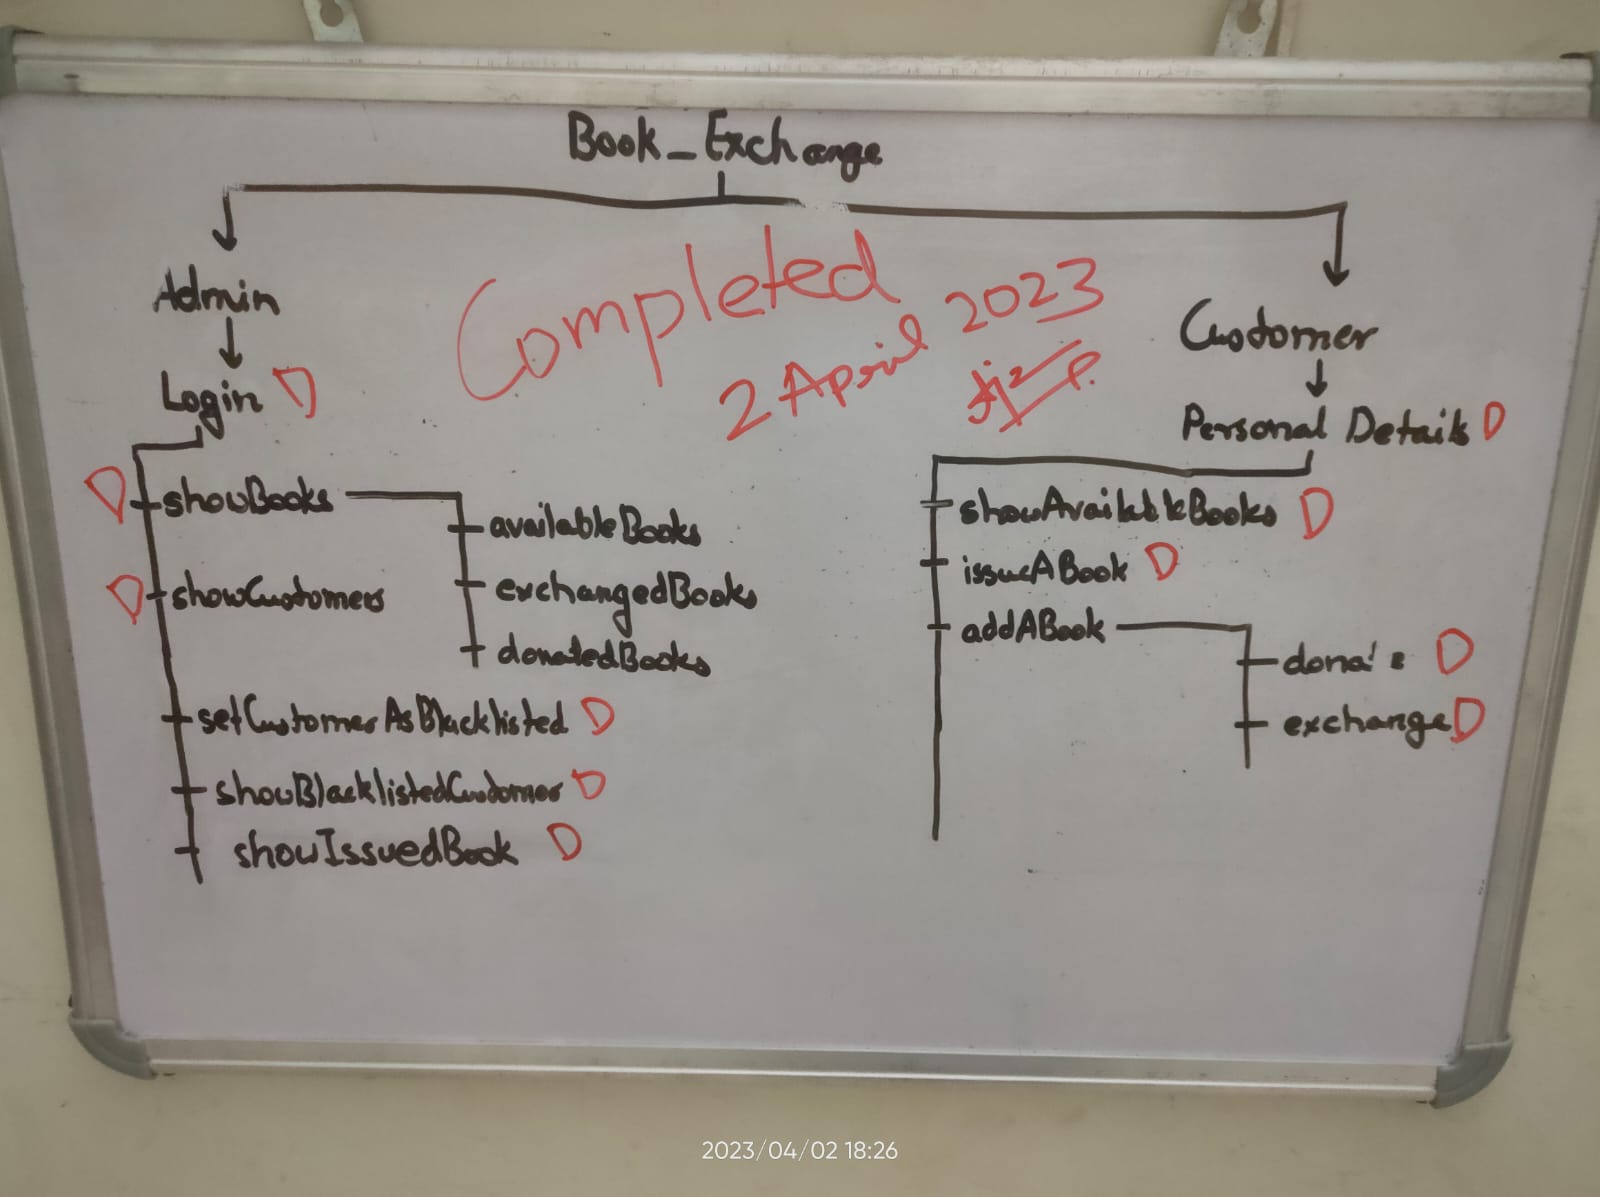 Book_Exchange
Admin
Login D
D showBooks
availableBooks
exchangedBooks
donatedBooks
D showCustomers
setCustomerAsBlacklisted D
showBlacklistedCustomer D
showIssuedBook D
Completed
2 April 2023
Customer
Personal Details D
showAvailableBooks D
issueABook D
addABook
donate D
exchange D
2023/04/02 18:26